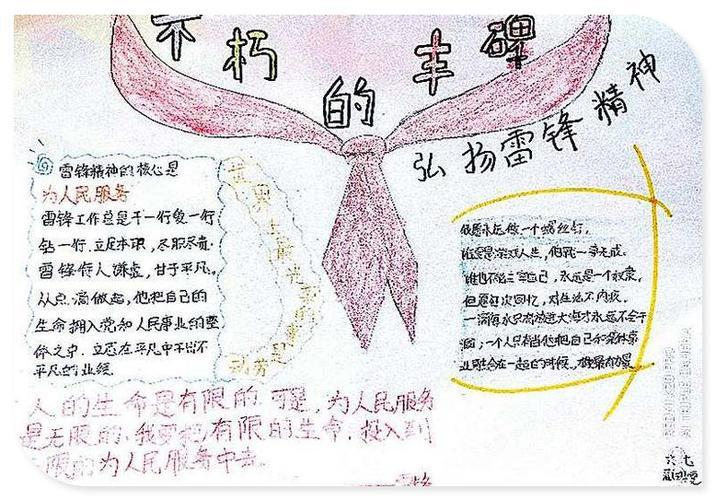 不朽的丰碑
弘扬雷锋精神
雷锋精神的核心是
为人民服务
雷锋工作总是干一行爱一行
钻一行,立足本职,尽职尽责。
雷锋待人谦虚,甘于平凡。
从点滴做起,他把自己的
生命拥入党和人民事业的整
体之中,立志在平凡中干出不
平凡的业绩
世界上最
劳
做一个螺丝钉,
人生,他我一事无成。
谁也不能 自己,永远是一个奴隶,
但愿每次回忆,对生活不内疚。
一滴水只有放进大海才永远不会干
涸;一个人只有当他把自己和集体事
业融合在一起的时候,
人的生命是有限的,可是,为人民服务
是无限的,我要把有限的生命,投入到
限的为人民服务中去。
REDMI K20 PRO
AI TRIPLE CAMERA
六 七